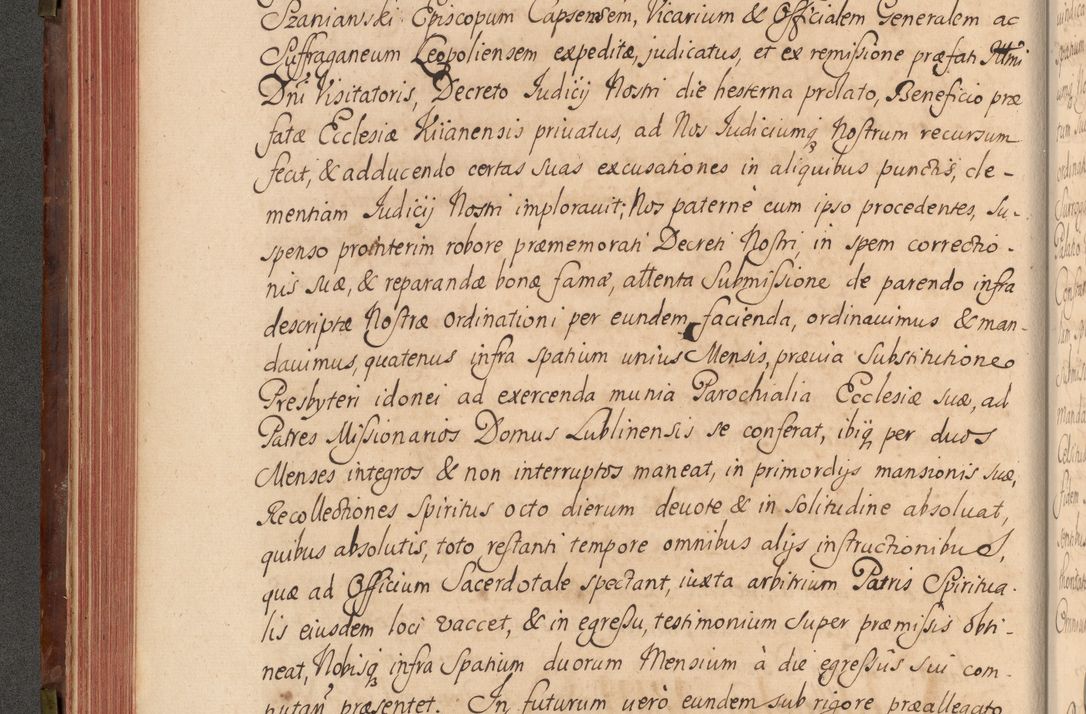 Szaniawski Episcopum Capsensem, Vicarium & Officialem Generalem ac
Suffraganeum Leopoliensem expeditæ, judicatus, et ex remissione præfati Illmi
Dni Visitatoris, Decreto Iudicij Nostri die hesterna prolato, Beneficio præ
fatæ Ecclesiæ Kiianensis priuatus, ad Nos Iudiciumq Nostrum recursum
fecit, & adducendo certas suas excusationes in aliquibus punctis, cle-
mentiam Iudicij Nostri implorauit; Nos paternè cum ipso procedentes, su-
spenso prointerim robore præmemorati Decreti Nostri, in spem correctio-
nis suæ, & reparandæ bonæ famæ, attenta Submissione de parendo infra
descriptæ Nostræ Ordinationi per eundem facienda, ordinauimus & man-
dauimus, quatenus infra spatium unius Mensis, præuia Substitutione
Presbyteri idonei ad exercenda munia Parochialia Ecclesiæ suæ, ad
Patres Missionarios Domus Lublinensis se conferat, ibiq per duos
Menses integros & non interruptos maneat, in primordijs mansionis suæ,
Recollectiones Spiritus octo dierum deuote & in solitudine absoluat,
quibus absolutis, toto restanti tempore omnibus alijs instructionibus,
quæ ad Officium Sacerdotale spectant, iuxta arbitrium Patris Spiritua-
lis eiusdem loci vaccet, & in egressu, testimonium super præmissis obti-
neat, Nobisq infra Spatium duorum Mensium à die egressûs sui com-
putan præsentet. In futurum uerò eundem sub rigore præallegato